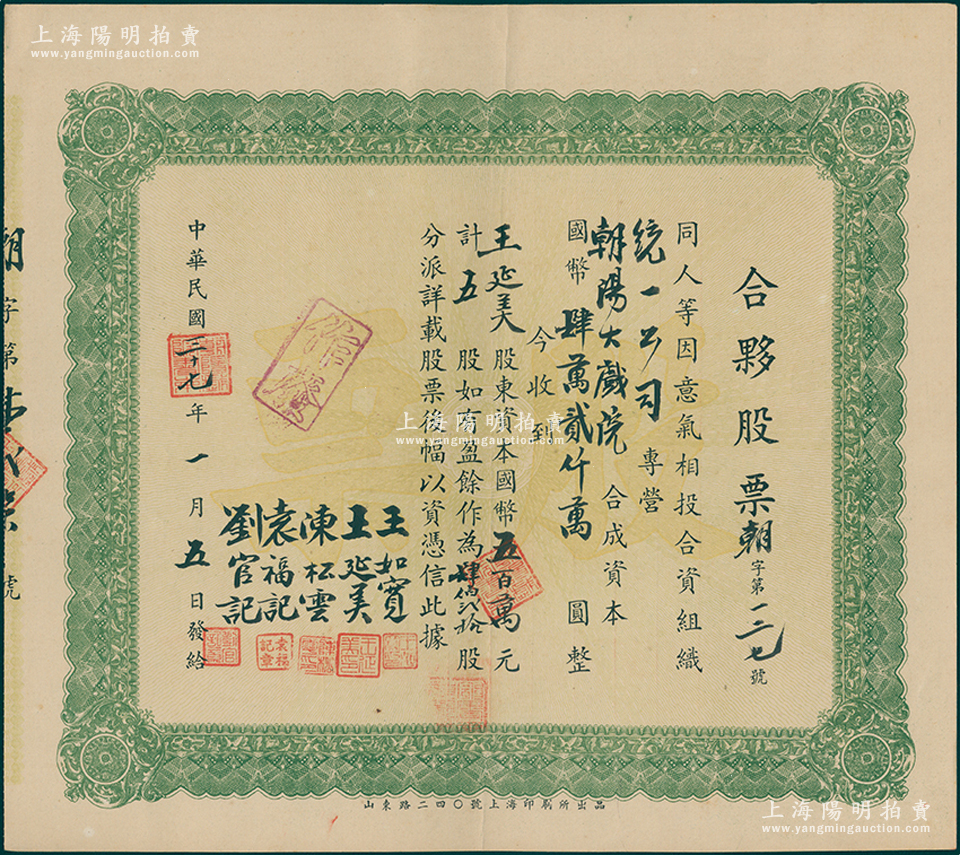 上海陽明拍賣
www.yangmingauction.com
上海陽明拍賣
www.yangmingauction.com
合夥股票朝字第一二七號
同人等因意氣相投合資組織
統一公司
朝陽大戲院
專營
合成資本
國幣肆萬貳仟萬圓整
今收到
王延美股東資本國幣五百萬元
計五股如有盈餘作為肆佰貳拾股
分派詳載股票後幅以資憑信此據
王如寬
王延美
陳松雲
袁福記
劉官記
袁福記章
中華民國三十七年一月五日發給
朝字第
號
山東路二四〇號上海印刷所出品
上海陽明拍賣
www.yangmingauction.com
上海陽明拍賣
www.yangmingauction.com